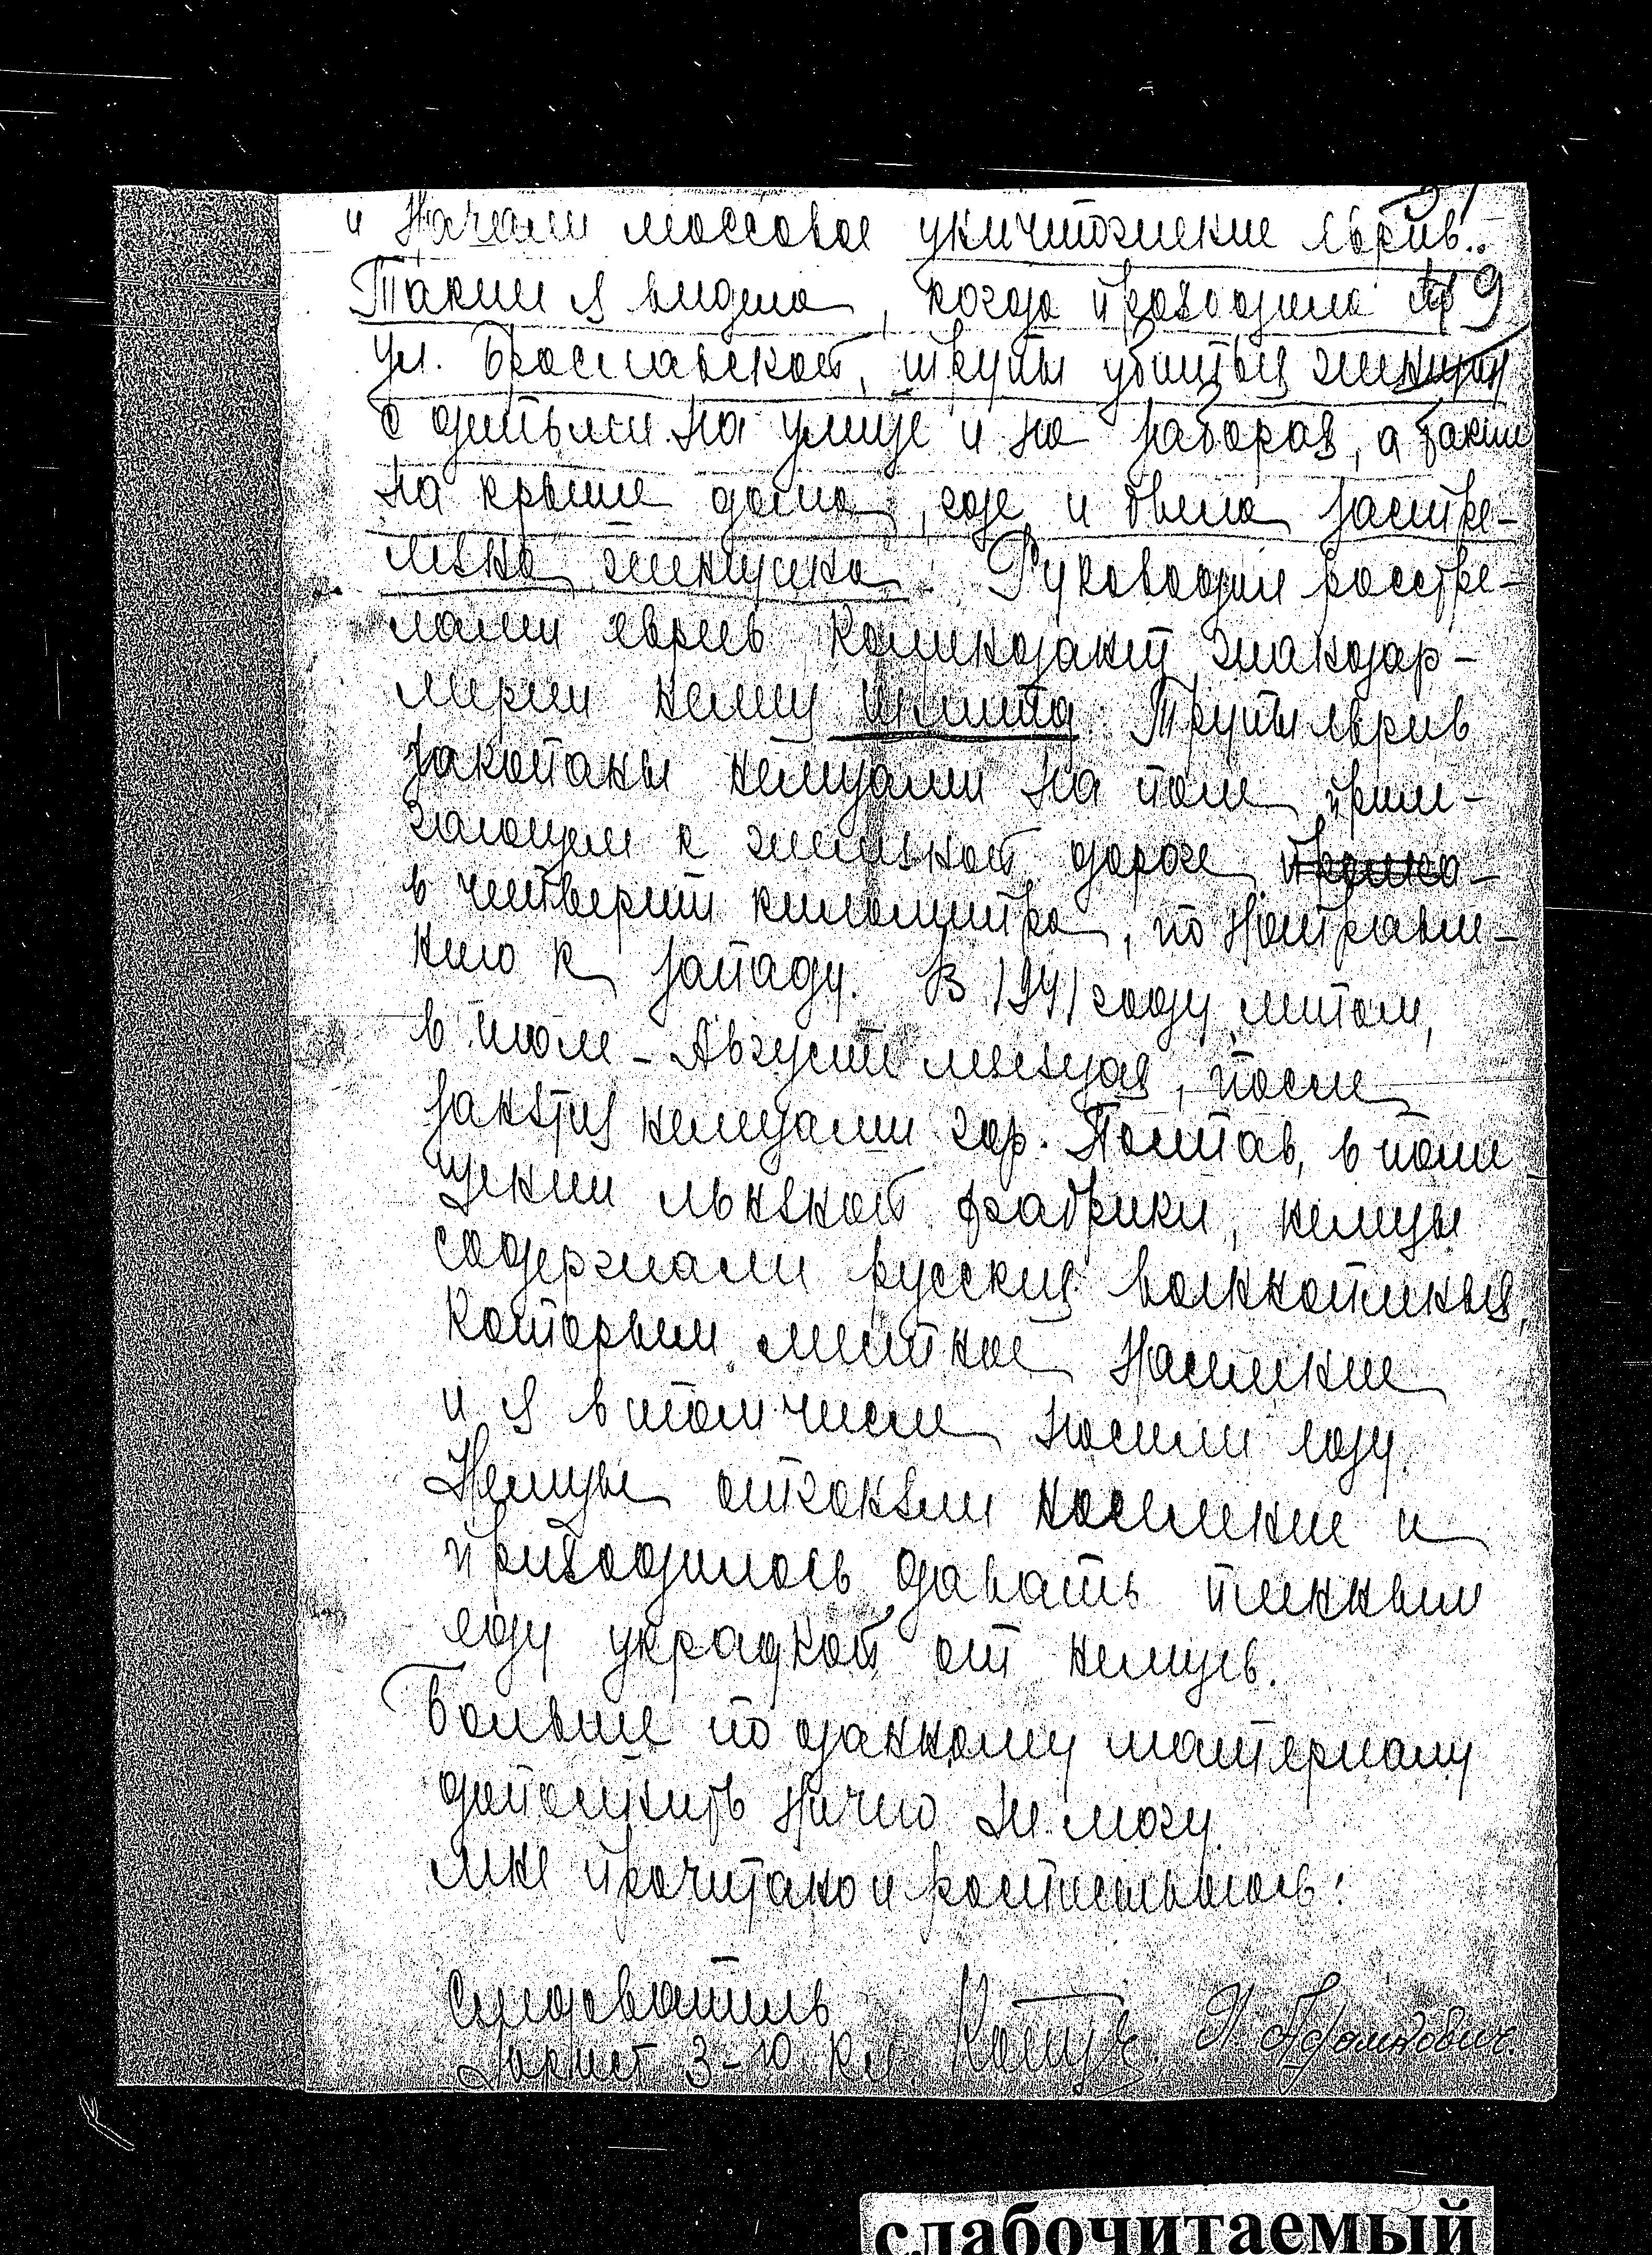 и начали массовое уничтожение евреев.
Также я видела, когда проходила по
9
ул. Браславской, трупы убитых женщин
с детьми на улице и на заборах, а также
на крыше дома, где и была застре-
лена женщина. Руководил расстре-
лами евреев комендант жандар-
мерии немец Шмита. Трупы евреев
закопаны немцами на поле, приле-
гающем к железной дороге
в четверти километра, по направле-
нию к западу. В 1941 году летом,
в июле-Августе месяцах, после
занятия немцами гор. Постав, в поме-
щении льняной фабрики, немцы
содержали русских военнопленных,
которым местное население
и я в том числе носили еду.
Немцы отгоняли население и
приходилось давать пленным
еду украдкой от немцев.
Больше по данному материалу
дополнить ничего не могу.
Мне прочитано и расписываюсь:
Следователь
юрист 3-го кл.
слабочитаемый